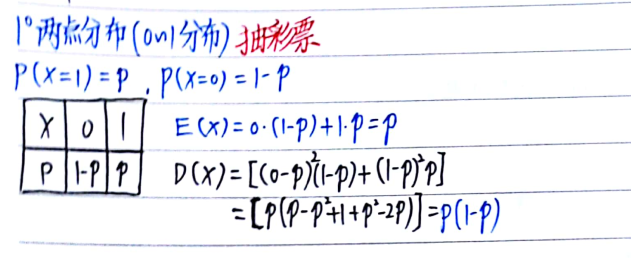 1° 两点分布(0n1分布) 抽彩票
P(X=1)=p, P(X=0)=1-p
X 0 1 E(X)=0·(1-p)+1·p=p
P 1-p p D(X)=[(0-p)²(1-p)+(1-p)²p]
=[p(p-p²+1+p²-2p)]=p(1-p)